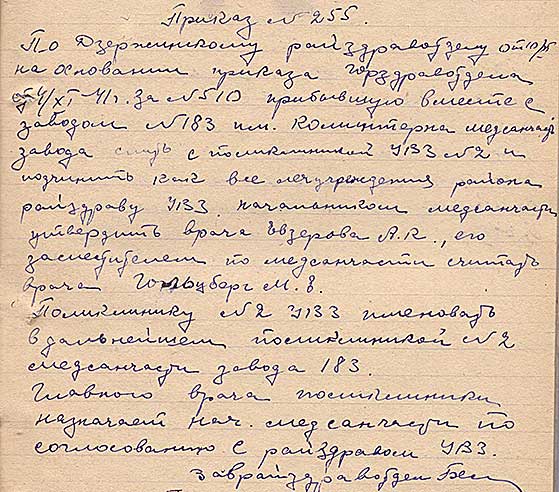 Приказ № 255.
По Дзержинскому райздравотделу от 10/XI
на основании приказа Горздравотдела
от 4/XI 41г. за № 510 прибывшую вместе с
заводом № 183 им. Коминтерна медсанчасть
завода слить с поликлиникой УВЗ № 2 и
подчинить как все лечучреждения района
райздраву УВЗ. начальником медсанчасти
утвердить врача Евзерова А.К., его
заместителем по медсанчасти считать
врача Гольцберг М.Е.
Поликлинику № 2 УВЗ именовать
в дальнейшем поликлиникой № 2
медсанчасти завода 183.
Главного врача поликлиники
назначает нач. медсанчасти по
согласованию с райздравом УВЗ.
Заврайздравотдел